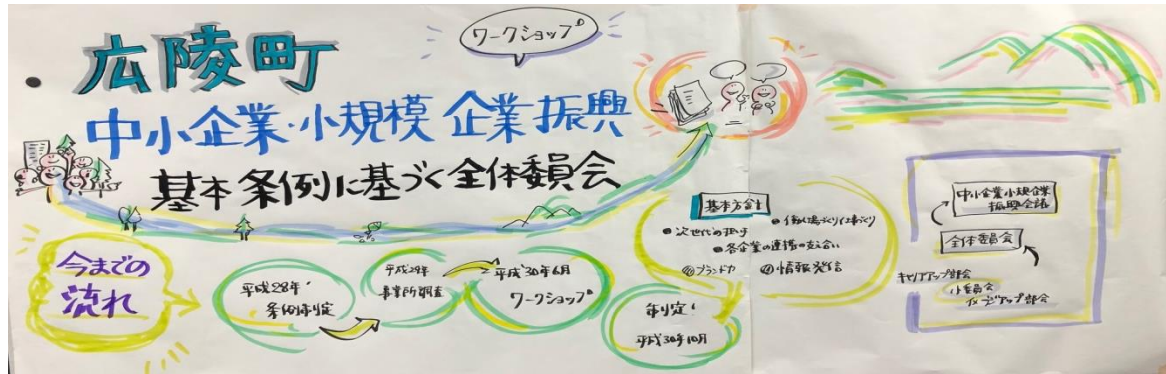 ワークショップ
広陵町
中小企業・小規模企業振興
基本条例に基づく全体委員会
今までの
流れ
平成28年
条例制定
平成29年
事業所調査
平成30年6月
ワークショップ
制定!
平成30年10月
基本方針
次世代の担手
働く場づくり仕事づくり
各企業の連携の支え合い
ブランド力
情報発信
中小企業小規模企業
振興会議
全体委員会
キャリアアップ部会
小委員会
イメージアップ部会